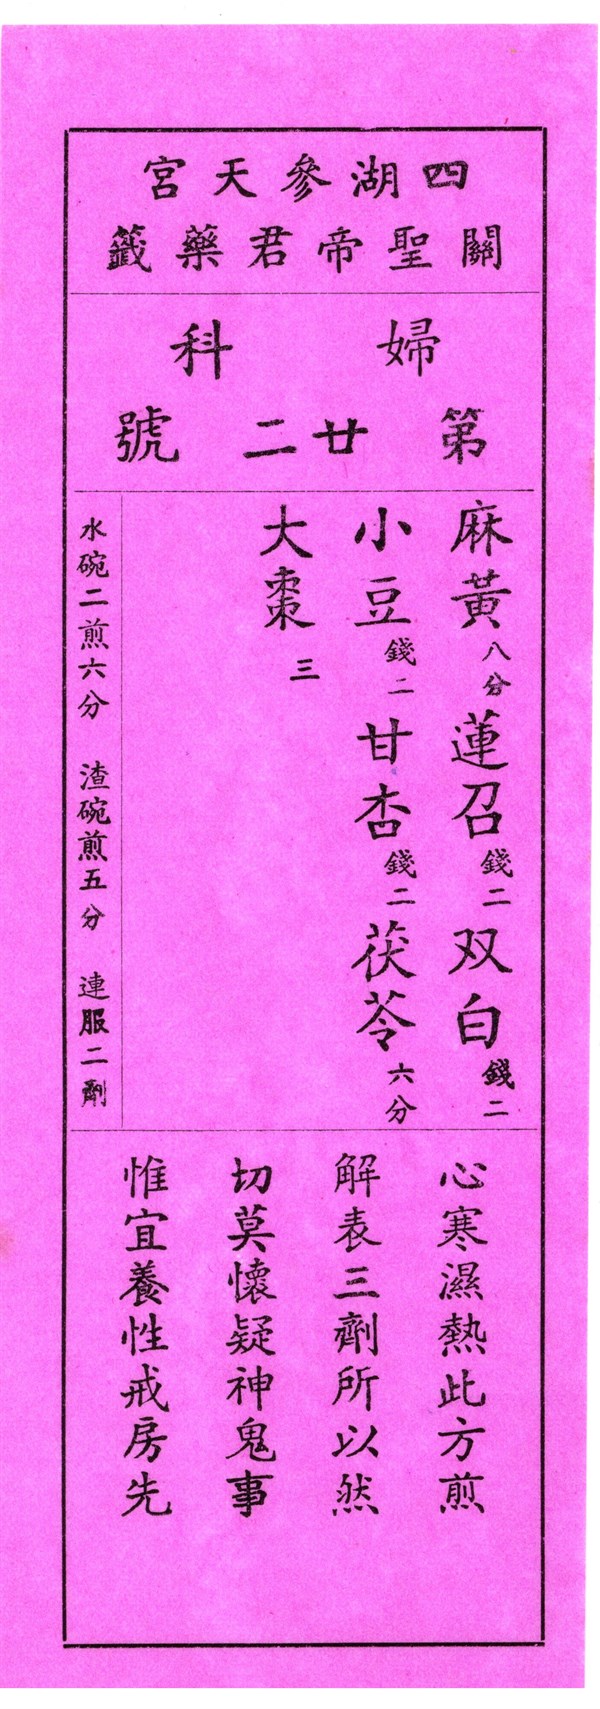 四湖參天宮
關聖帝君藥籤
婦科
第廿二號
麻黃八分 蓮召錢二 双白錢二
小豆錢二 甘杏錢二 茯苓六分
大棗三
水碗二煎六分 渣碗煎五分 連服二劑
心寒濕熱此方煎
解表三劑所以然
切莫懷疑神鬼事
惟宜養性戒房先